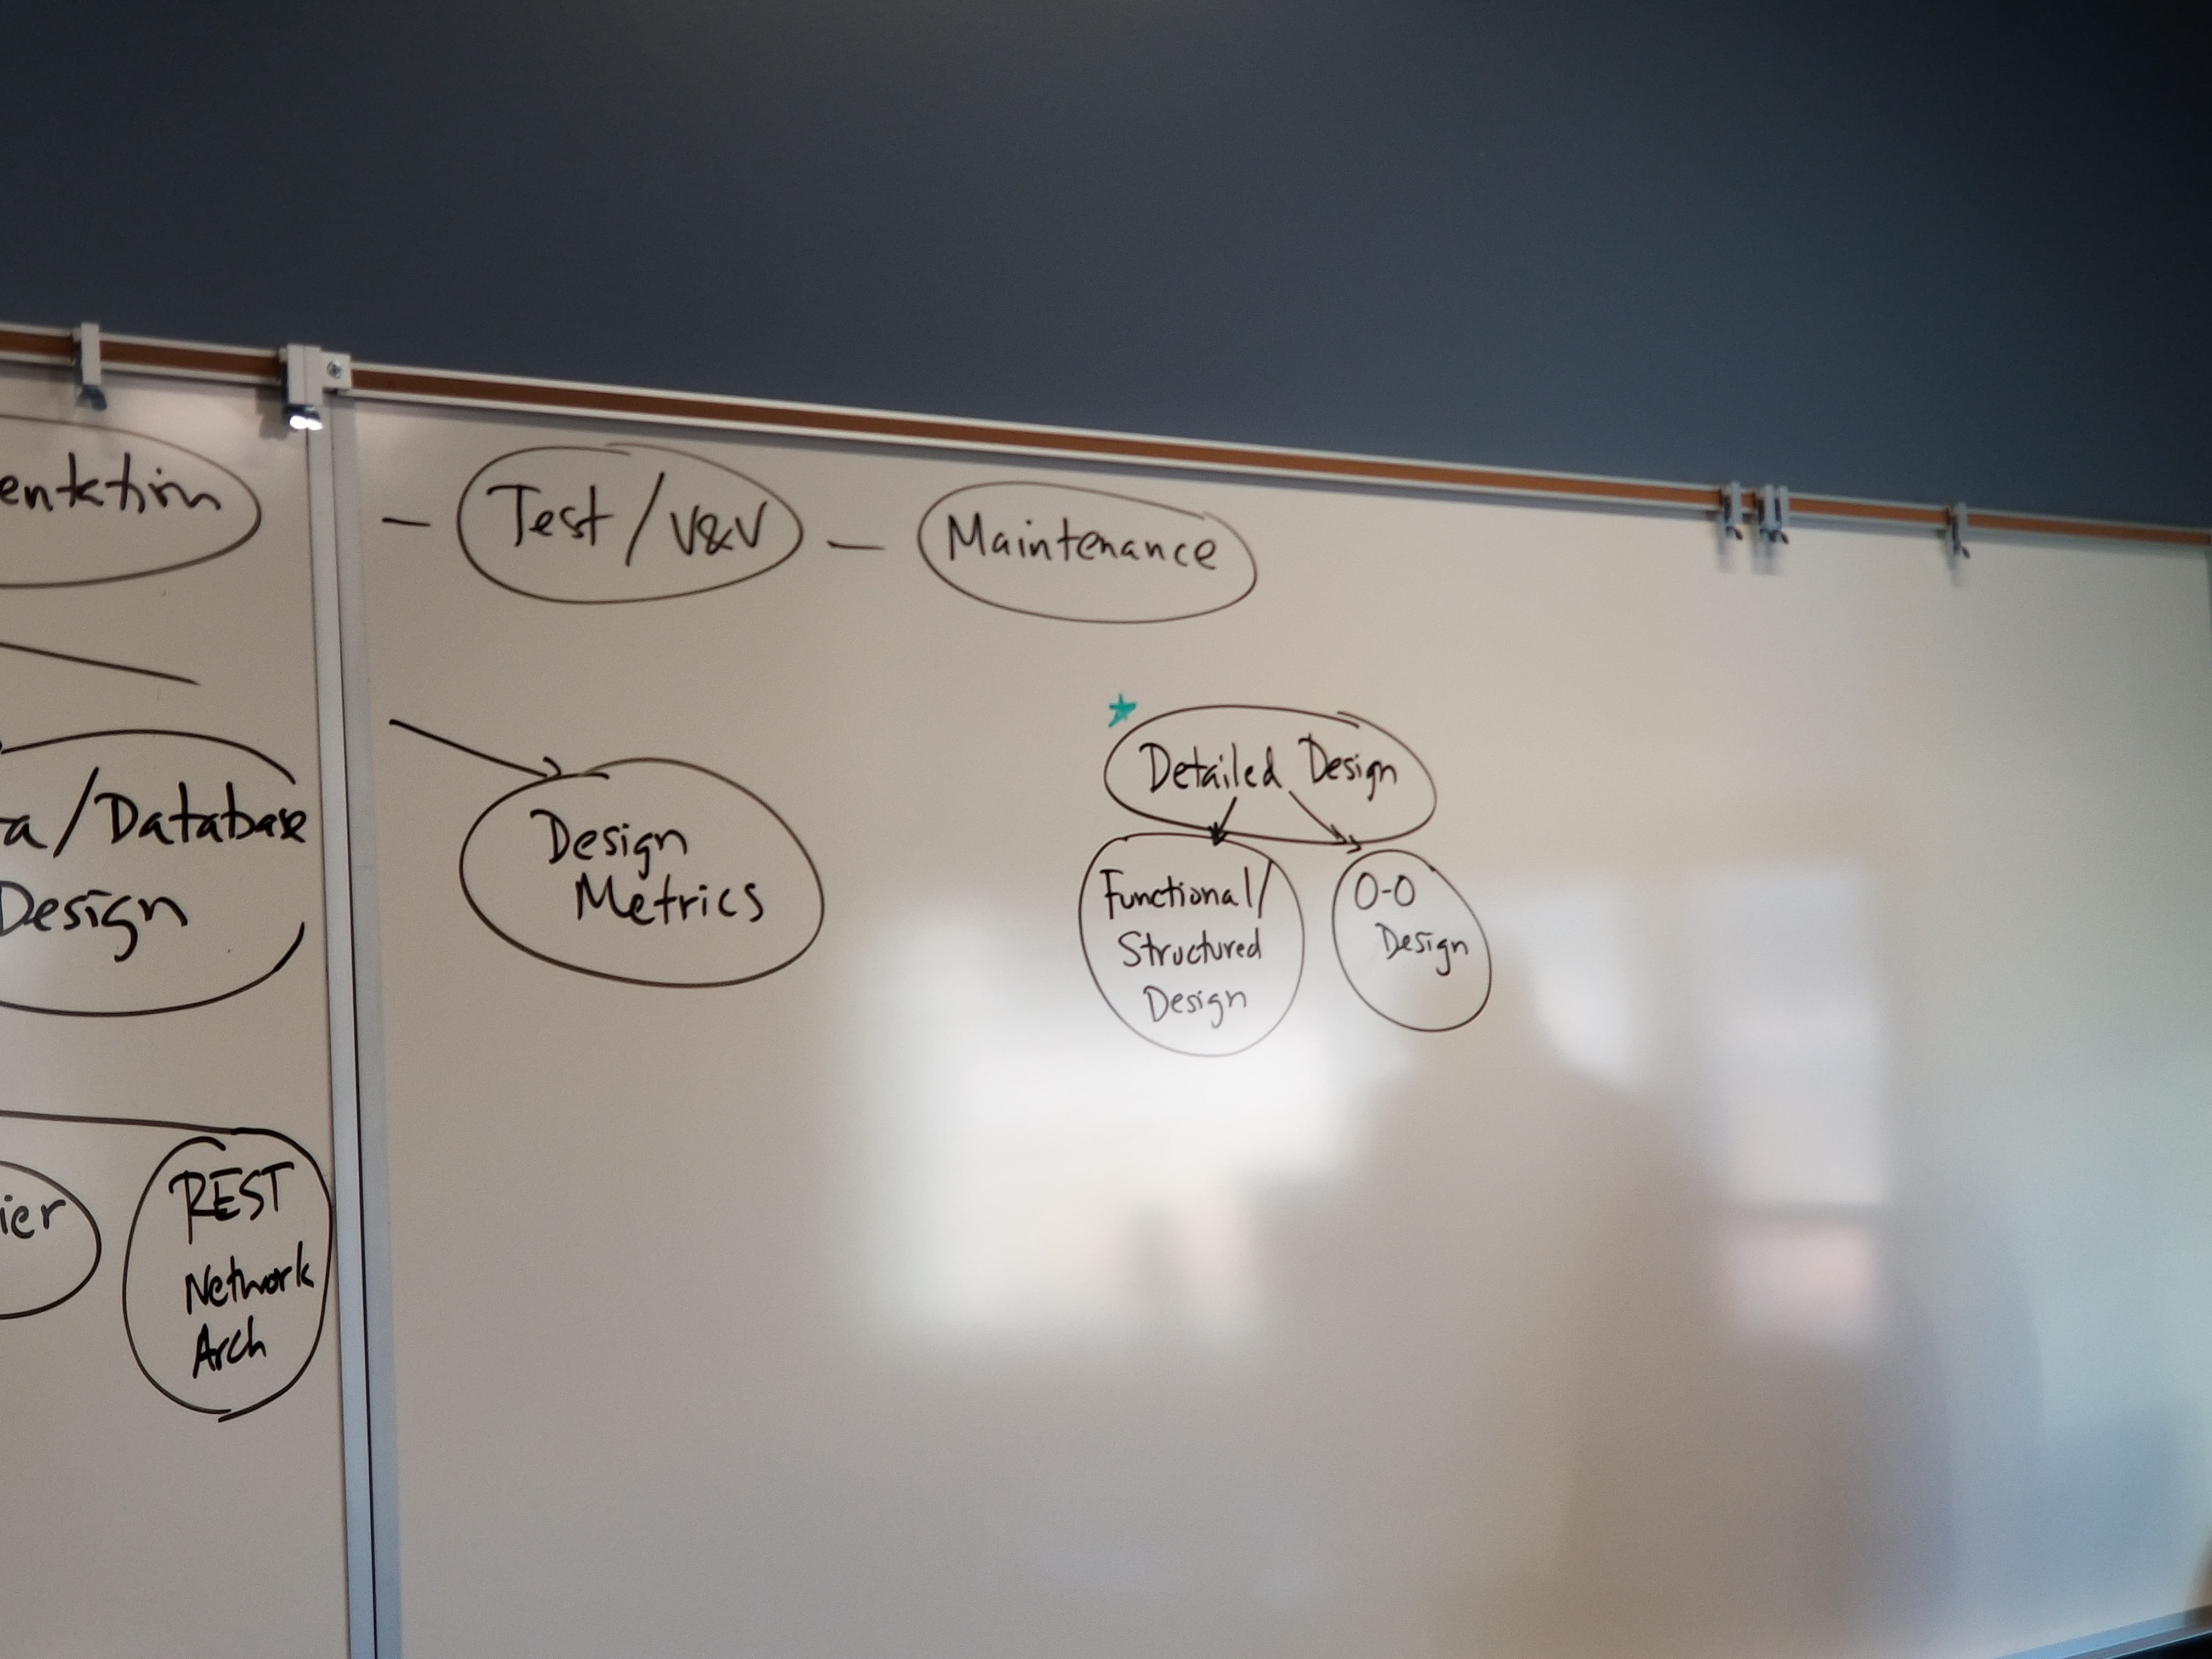 entation
Test/V&V
Maintenance
a/Database
Design
Design
Metrics
Detailed Design
Functional/
Structured
Design
O-O
Design
ier
REST
Network
Arch